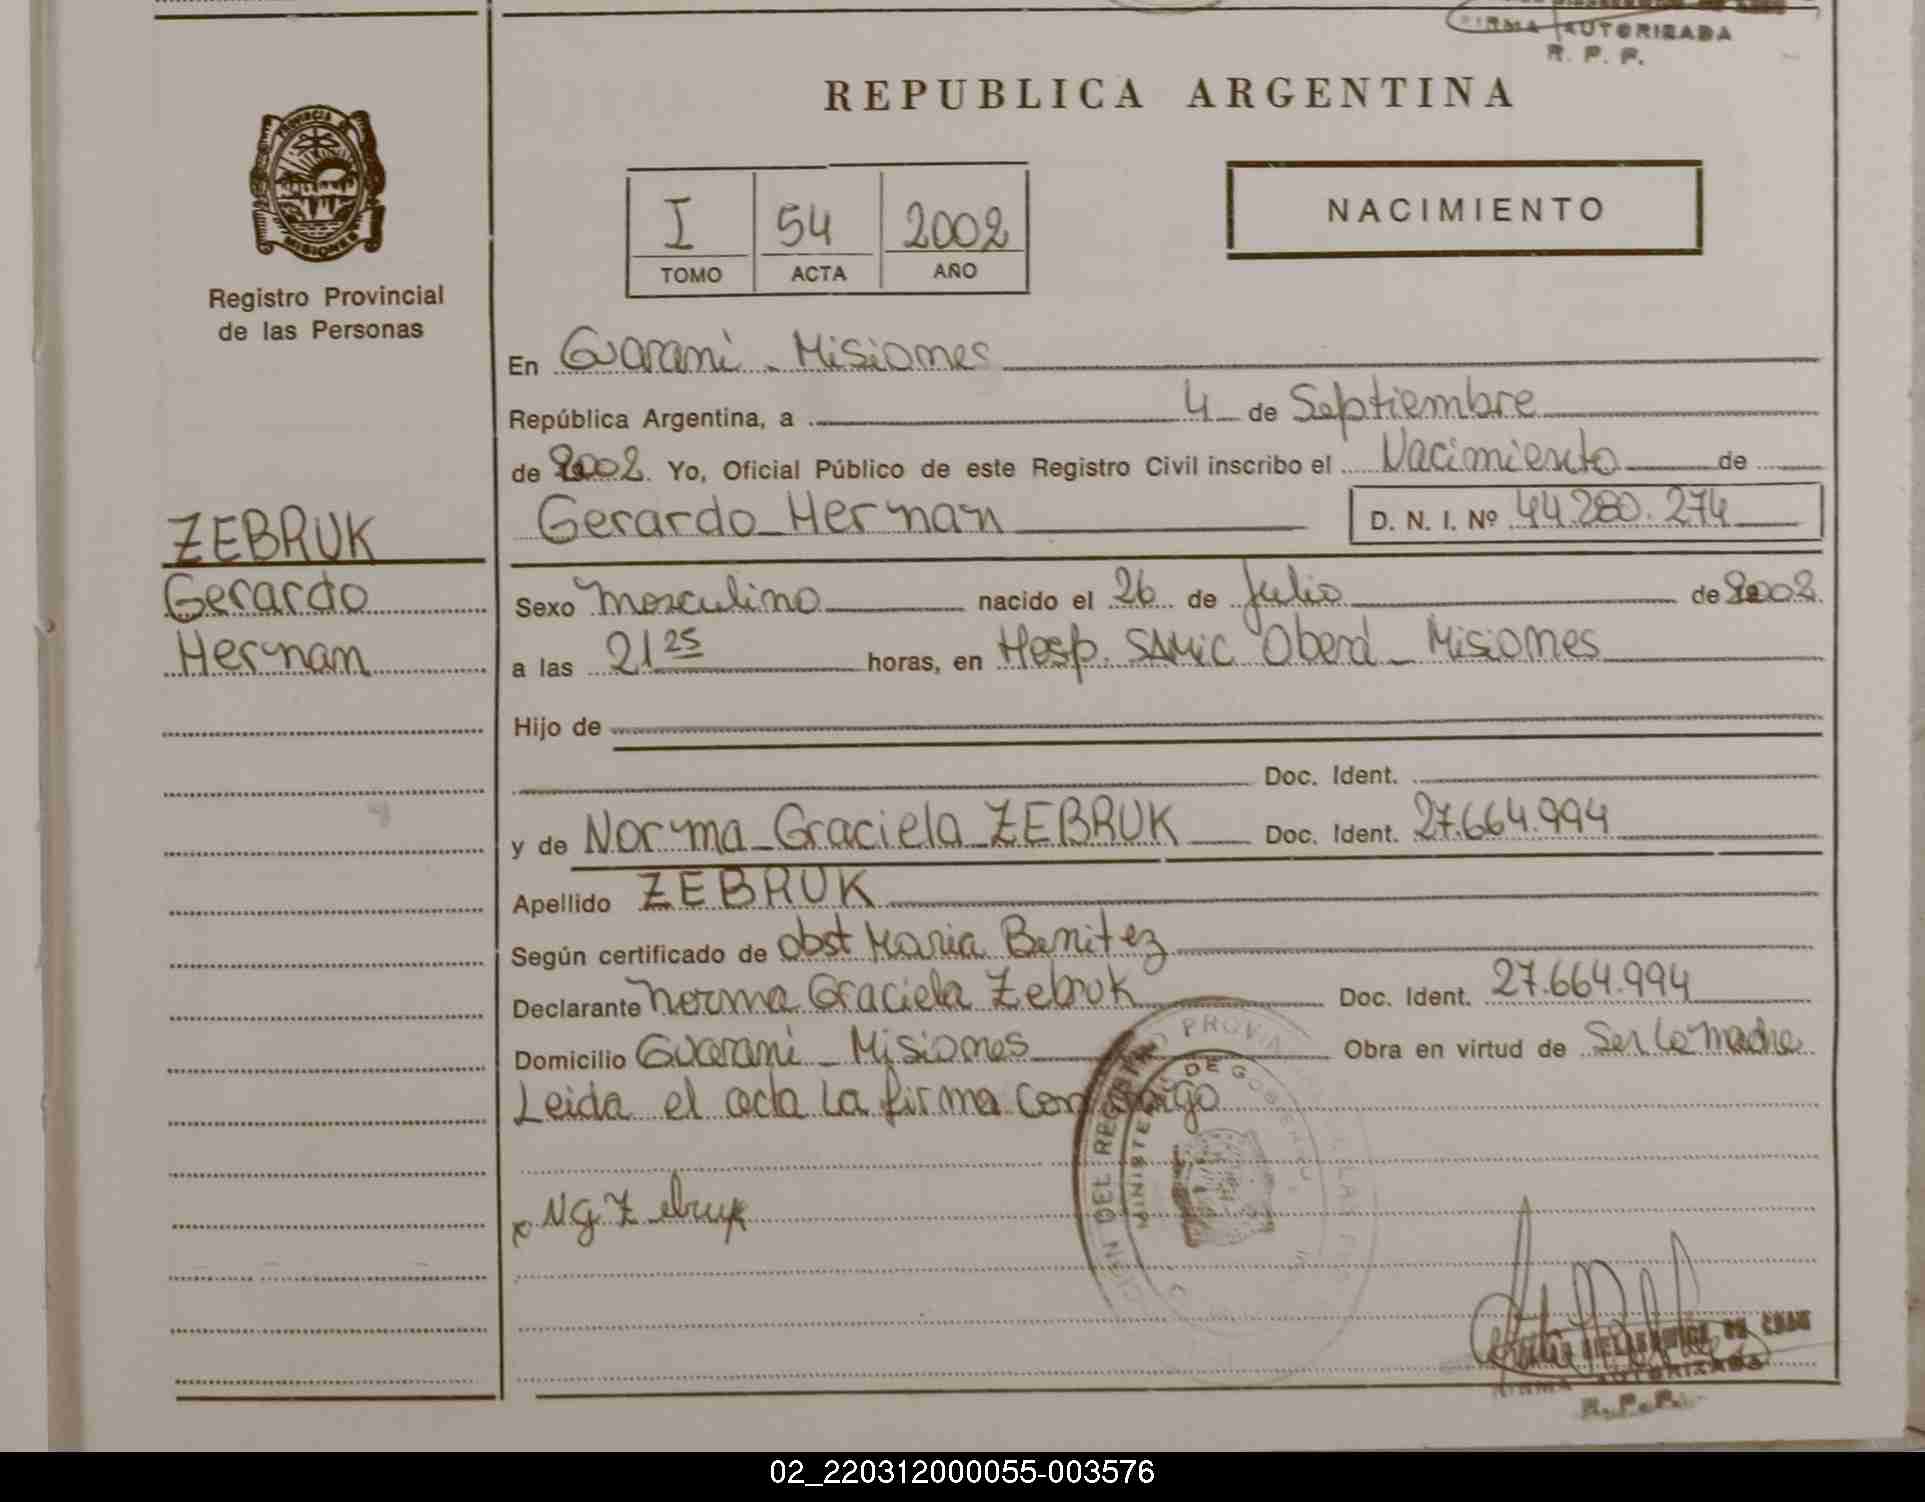 FIRMA AUTORIZADA
R. P. P.
REPUBLICA ARGENTINA
PROVINCIA DE
MISIONES
Registro Provincial
de las Personas
I 54 2002
TOMO ACTA AÑO
NACIMIENTO
En Guaraní - Misiones
República Argentina, a 4 de Septiembre
de 2002. Yo, Oficial Público de este Registro Civil inscribo el Nacimiento de
Gerardo Hernan D. N. I. Nº 44.280.274
ZEBRUK
Gerardo
Hernan
Sexo Masculino nacido el 26 de Julio de 2002.
a las 21 25 horas, en Hosp. SAMIC Oberá - Misiones
Hijo de
Doc. Ident.
y de Norma Graciela ZEBRUK Doc. Ident. 27.664.994
Apellido ZEBRUK
Según certificado de obst Maria Benitez
Declarante Norma Graciela Zebruk Doc. Ident. 27.664.994
Domicilio Guaraní - Misiones Obra en virtud de Ser la madre
Leida el acta La firma conmigo
x N G Zebruk
DEL REGISTRO PROVINCIAL DE LAS PER
MINISTERIO DE GOBIERNO
FIRMA AUTORIZADA
R. P. P.
02_220312000055-003576